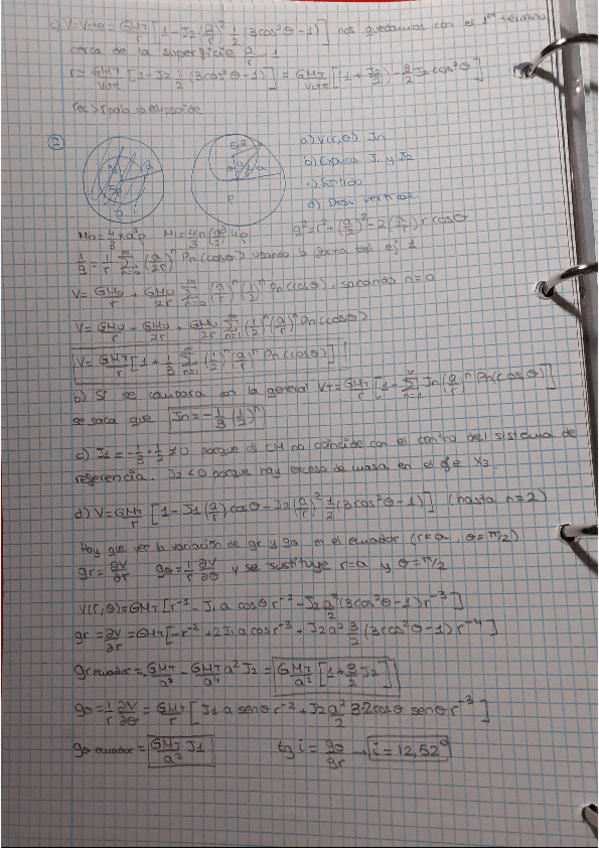 c) V=Vcte=GMT/r [1-J2(a/r)² 1/2 (3cos²θ-1)] nos quedamos con el 1er término
cerca de la superficie
r≈ GMT/Vcte [1-J2 1/2 (3cos²θ-1)] = GMT/Vcte [(1+J2/2)-3/2 J2 cos²θ]
elipsoide
2
a) V(r,θ) Jn
b) J1 y J2
c) Sentido
d) Desv vertical
M0=4/3 πa³ρ M1=4/3 π(a/2)³4ρ q²=r²+(a/2)²-2(a/2)r cosθ
1/q=1/r Σ (a/2r)ⁿ Pn(cosθ) usando la forma del ej 1
V= GM0/r + GM0/2r Σn=0 (a/r)ⁿ(1/2)ⁿ Pn(cosθ), sacando n=0
V= GM0/r + GM0/2r + GM0/2r Σn=1 (1/2)ⁿ(a/r)ⁿ Pn(cosθ)
V= GMT/r [1+1/3 Σn=1 (1/2)ⁿ(a/r)ⁿ Pn(cosθ)]
b) Si se compara con la general VT=GMT/r [1-Σn=1 Jn(a/r)ⁿ Pn(cosθ)]
se saca que Jn=-1/3(1/2)ⁿ
c) J1=-1/3·1/2≠0 porque el CM no coincide con el centro del sistema de
referencia. J2<0 porque hay exceso de masa en el eje X3.
d) V=GMT/r [1-J1(a/r)cosθ-J2(a/r)² 1/2 (3cos²θ-1)] (hasta n=2)
Hay que ver la variación de gr y gθ en el ecuador (r=a, θ=π/2)
gr=∂V/∂r gθ=1/r ∂V/∂θ y se sustituye r=a y θ=π/2
V(r,θ)=GMT[r⁻¹-J1 a cosθ r⁻²-J2 a²/2 (3cos²θ-1)r⁻³]
gr=∂V/∂r=GMT[-r⁻²+2J1 a cos r⁻³+J2a² 3/2 (3cos²θ-1)r⁻⁴]
gr ecuador=-GMT/a² - GMT/a⁴ a² J2 = GMT/a² [1+3/2 J2]
gθ=1/r ∂V/∂θ=GMT/r [J1 a senθ r⁻²+J2 a²/2 3·2cosθ senθ r⁻³]
gθ ecuador=GMT/a² J1 tg i= gθ/gr → i=12,52º